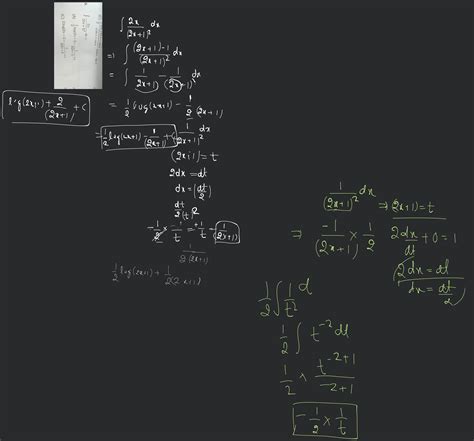 ∫ 2x/(2x+1)² dx
=) ∫ (2x+1)-1/(2x+1)² dx
= ∫ 1/(2x+1) - 1/(2x+1)² dx
= 1/2 log(2x+1) - 1/2 (2x+1)
log(2x+1) + 2/(2x+1) + C
= 1/2 log(2x+1) - 1/(2x+1) + C
1/(2x+1)² dx
(2x+1) = t
2dx = dt
dx = (dt/2)
dt/2(t)²
-1/2 × -1/t = +1/t - 1/(2x+1)
1/2(2x+1)
1/2 log(2x+1) + 1/2(2x+1)
1/(2x+1)² dx ⇒ (2x+1) = t
⇒ -1/(2x+1) × 1/2
2dx/dt + 0 = 1
2dx = dt
dx = dt/2
1/2 ∫ 1/t² d
1/2 ∫ t⁻² dt
1/2 × t⁻²⁺¹/-2+1
-1/2 × 1/t